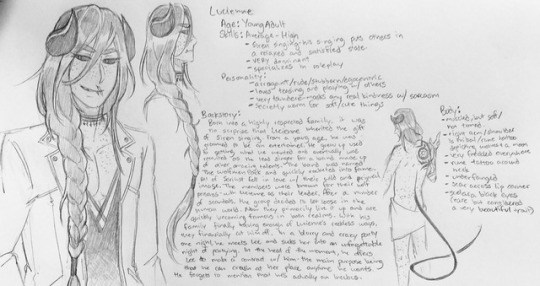 Lucienne
Age: Young Adult
Skills: Average - High
- Siren singing - his singing puts others in
a relaxed and satisfied state.
- very dominant
- specializes in roleplay
Personality:
- arrogant/rude/stubborn/egocentric
- loves teasing and playing w/ others
- very tsundere - masks any real kindness w/ sarcasm
- secretly warm for soft/cute things
Backstory:
Born into a highly respected family, it was
no surprise that Lucienne inherited the gift
of siren singing. From a young age, he was
groomed to be an entertainer. He grew up used
to getting what he wanted and eventually was
recruited as the lead singer for a band made up
of other talents. The band was named
and quickly rocketed into fame.
fell in love w/ their and
image. The members were known for their
w/ Lucienne as their leader. After a number
of scandals, the group decided to let loose in the
human world. Now they primarily live it up and are
quickly becoming famous in both realms. With his
family finally having enough of Lucienne's reckless ways,
they financially cut him off. In a blurry and crazy party
one night, he meets Lee and sucks her into an unforgettable
night of partying. In the heat of the moment, he offers
Lee to make a contract w/ him - the main purpose being
that he can crash at her place anytime he wants.
He forgets to mention that he's actually an incubus.
Body:
- muscled, but soft/
not toned
- right arm/shoulder
is tribal/rune tattoo
circling around a moon
- very freckled everywhere
- rune tattoo around
neck
- scar across lip corner
- sclera black eyes
(rare but considered
a very beautiful trait)